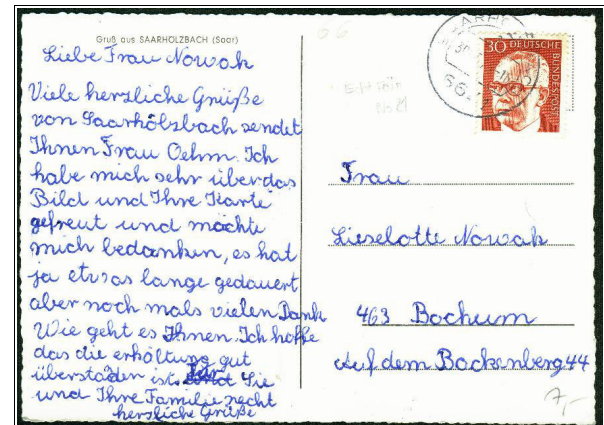 Gruß aus SAARHÖLZBACH (Saar)
Liebe Frau Nowak
Viele herzliche Grüße
von Saarhölzbach sendet
Ihnen Frau Oehm. Ich
habe mich sehr über das
Bild und Ihre Karte
gefreut und möchte
mich bedanken, es hat
ja etwas lange gedauert
aber noch mals vielen Dank
Wie geht es Ihnen. Ich hoffe
das die erhältung gut
überstaden ist. Sie
und Ihre Familie recht
herzliche Grüße
30 DEUTSCHE
BUNDESPOST
Frau
Lieselotte Nowak
463 Bochum
Auf dem Backenberg 44
7,-